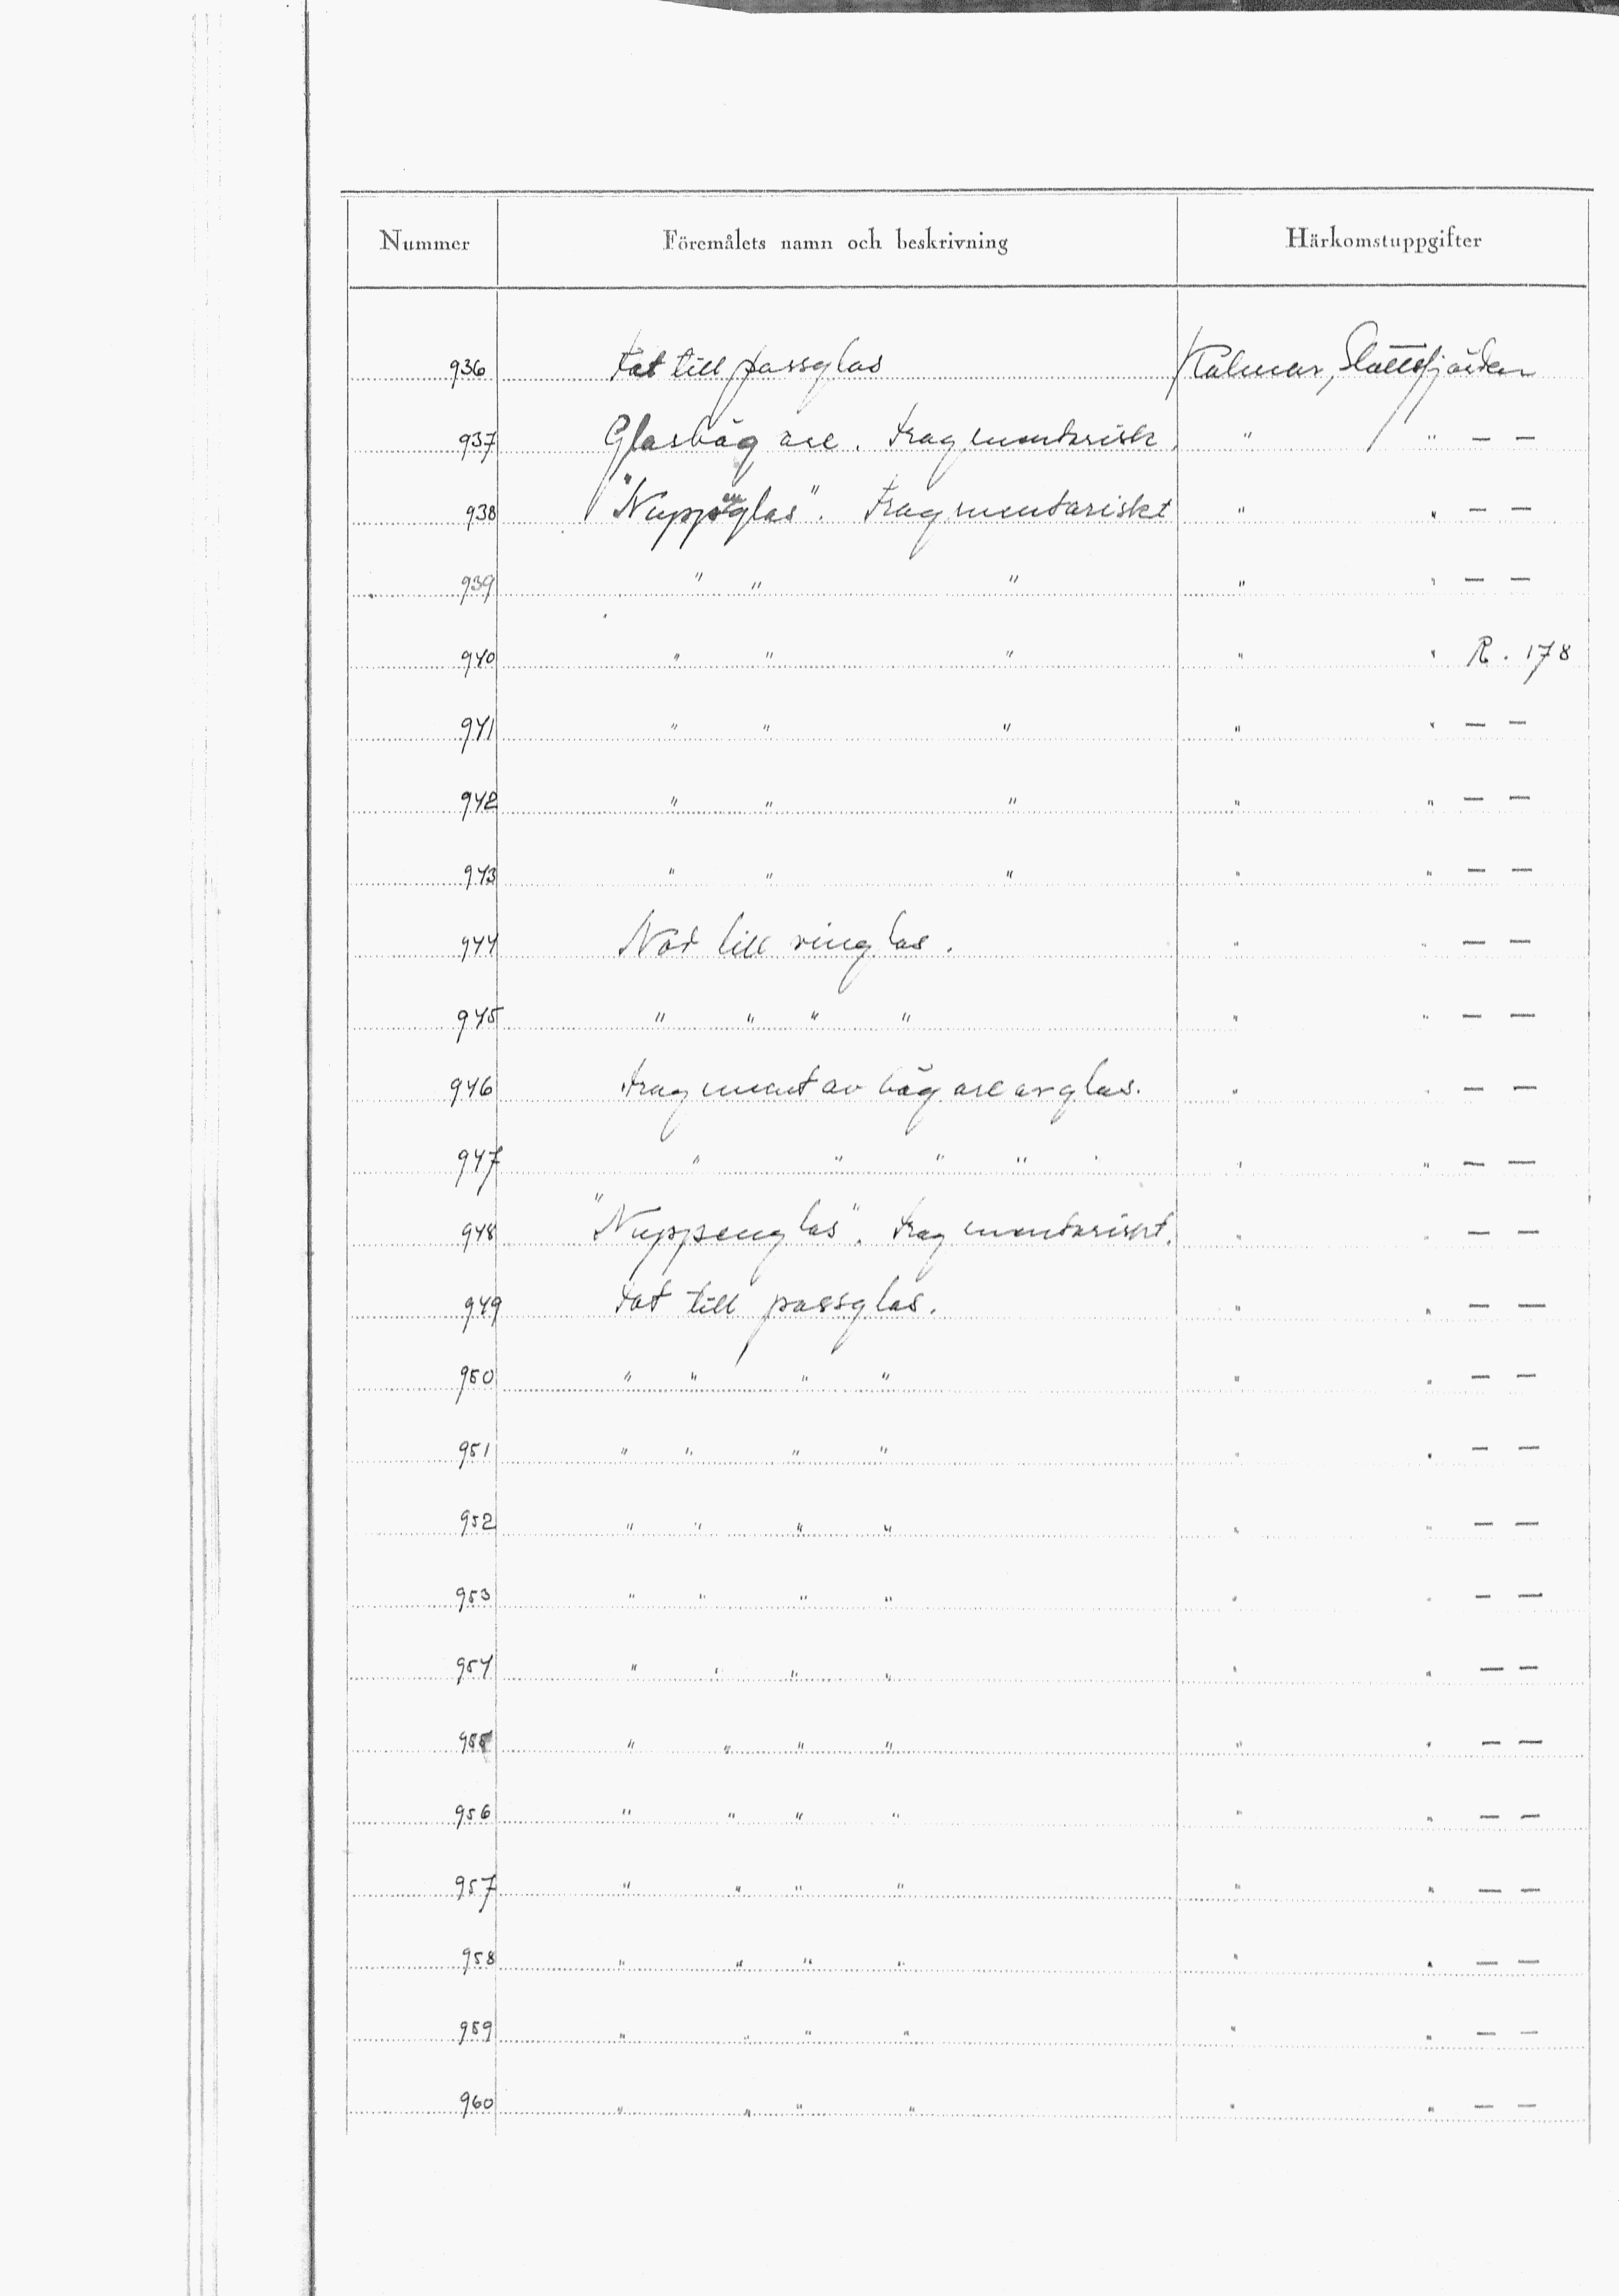 Nummer Föremålets namn och beskrivning Härkomstuppgifter
936 Fot till passglas Kalmar, Slottsfjärden
937 Glasbägare. Fragmentarisk. " " — —
938 "Nuppenglas". Fragmentariskt " " — —
939 " " " " " — —
940 " " " " " R. 178
941 " " " " " — —
942 " " " " " — —
943 " " " " " — —
944 Nod till vinglas. " " — —
945 " " " " " " — —
946 Fragment av bägare av glas. " " — —
947 " " " " " " " — —
948 "Nuppenglas". Fragmentariskt. " " — —
949 Fot till passglas. " " — —
950 " " " " " " — —
951 " " " " " " — —
952 " " " " " " — —
953 " " " " " " — —
954 " " " " " " — —
955 " " " " " " — —
956 " " " " " " — —
957 " " " " " " — —
958 " " " " " " — —
959 " " " " " " — —
960 " " " " " " — —